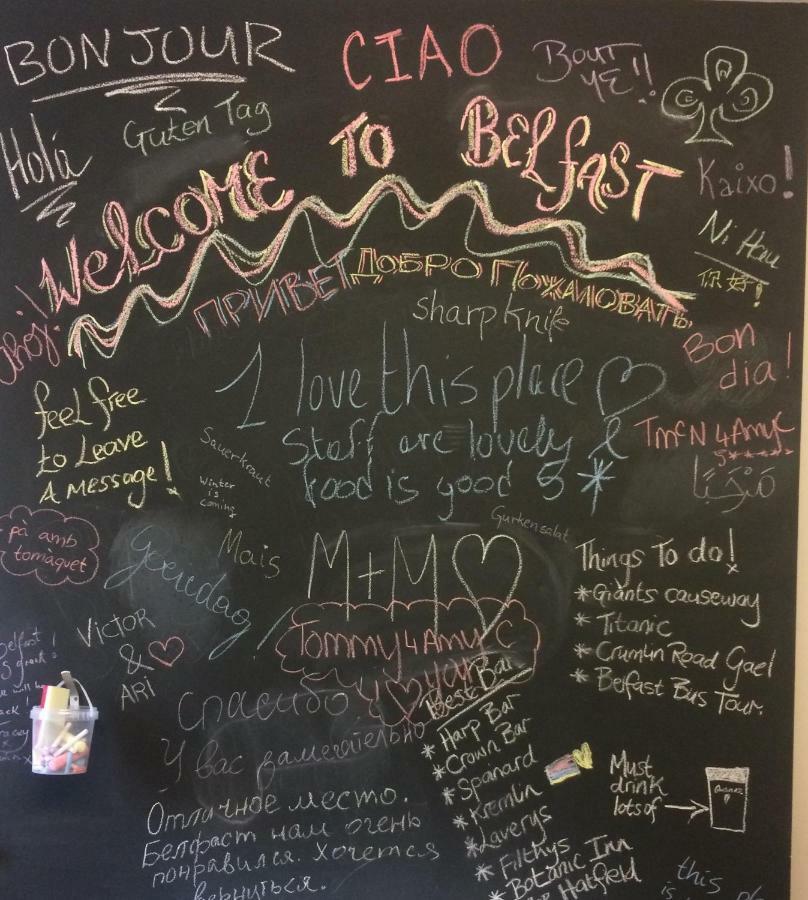 BONJOUR
CIAO
BOUT
YE!!
Holá
Guten Tag
WELCOME TO BELFAST
Kaixo!
Ni Hau
你好!
ПРИВЕТ ДОБРО ПОЖАЛОВАТЬ
Ahoj!
sharp knife
Bon
dia!
I love this place
Staff are lovely &
food is good 5*
feel free
to Leave
A message!
Sauerkraut
Winter
is
coming
TMcN 4 Amy C
5*****
مَرْحَبًا
Gurkensalat
pà amb
tomàquet
goeiedag!
Mais
M+M
Things To do!
* Giants causeway
* Titanic
* Crumlin Road Gael
* Belfast Bus Tour.
VICTOR
&
ARi
Tommy 4 Amy C
Спасибо
У вас замечательно
Отличное место.
Белфаст нам очень
понравился. Хочется
вернуться.
Best Bar
* Harp Bar
* Crown Bar
* Spanard
* Kremlin
* Laverys
* Filthys
* Botanic Inn
Hatfield
Must
drink
lots of
this
is